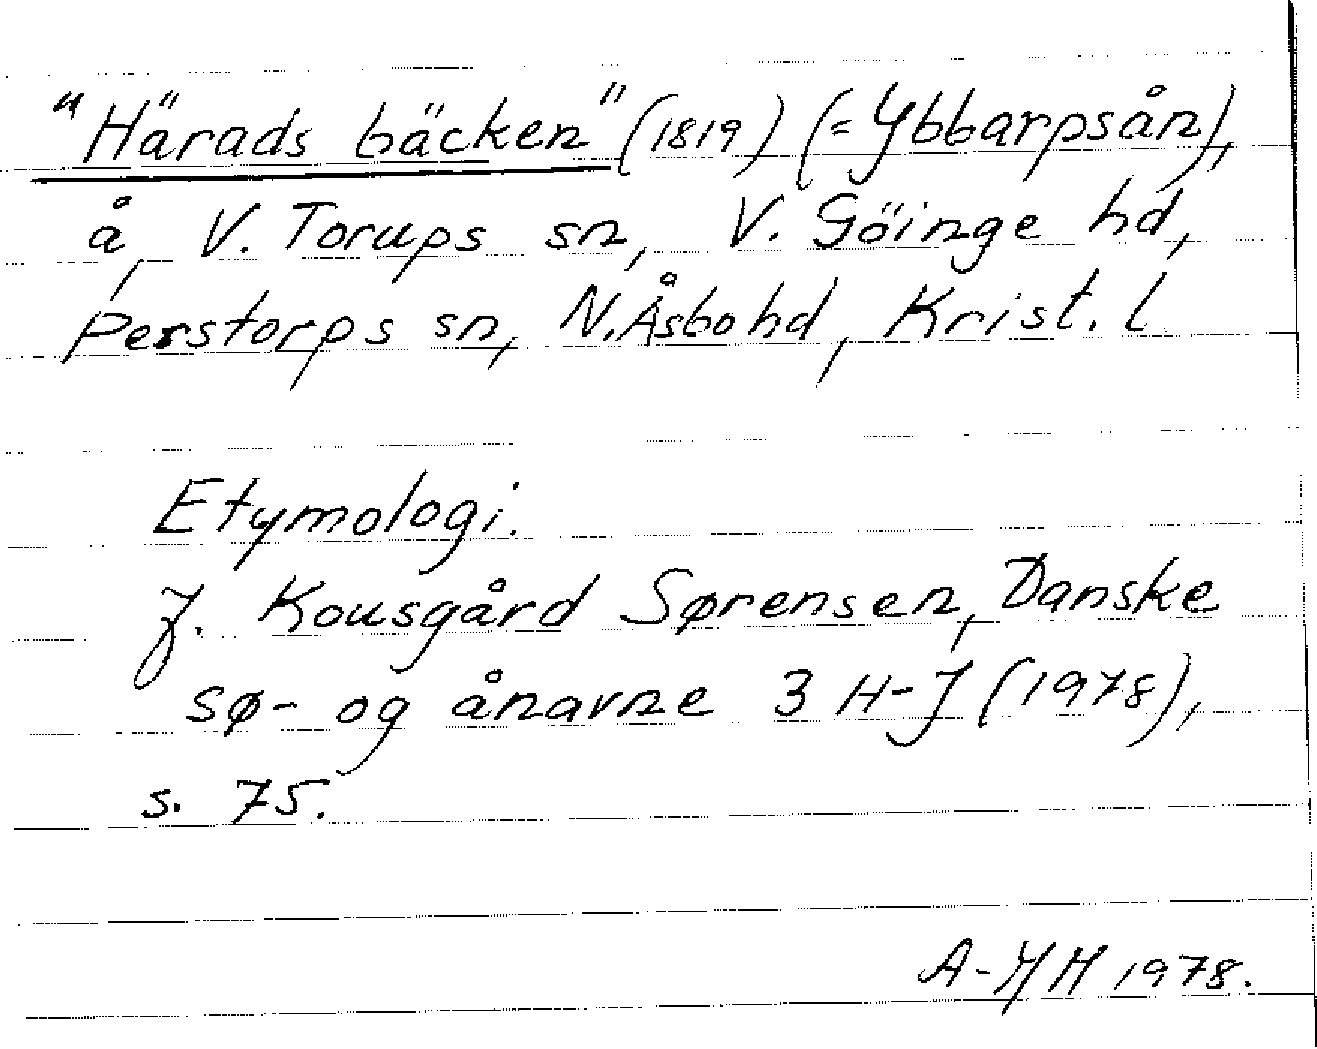 "Härads bäcken" (1819) (= Ybbarpsån),
å, V. Torups sn, V. Göinge hd,
Perstorps sn, N. Åsbo hd, Krist. l
Etymologi.
J. Kousgård Sørensen, Danske
sø- og ånavne 3 H-J (1978),
s. 75.
A-YH 1978.